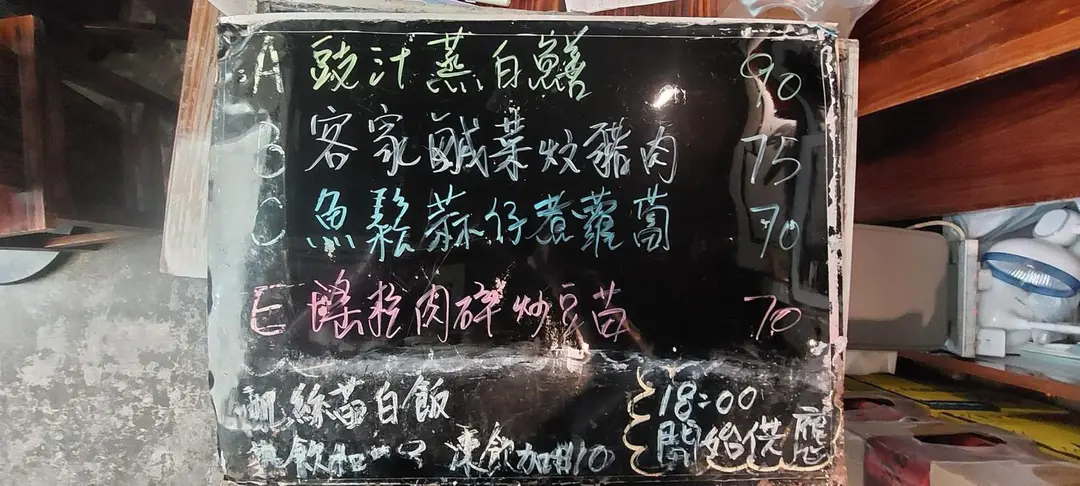 A 豉汁蒸白鱔 90
B 客家鹹菜炆豬肉 75
C 魚鬆蒜仔煮蘿蔔 70
E 瑤柱肉碎炒豆苗 70
絲苗白飯
18:00
飲加 凍飲加#10
開始供應